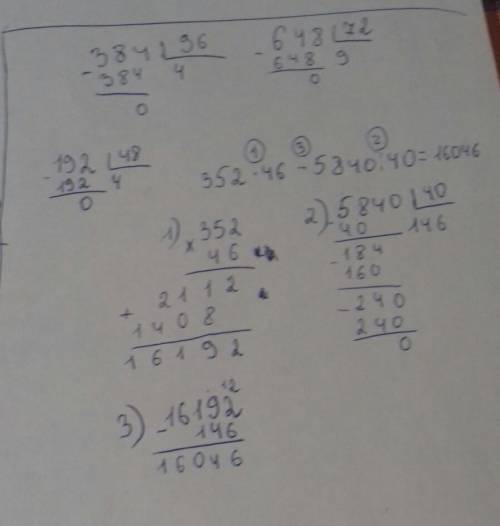 384 96
- 384 4
0
648 72
- 648 9
0
192 48
- 192 4
0
① ③ ②
352 · 46 - 5840 : 40 = 16046
1) 352
× 46
2112
+ 1408
16192
2) 5840 40
- 40 146
- 184
160
- 240
240
0
12
3) 16192
- 146
16046